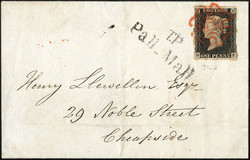 POSTAGE
T.P
Pall-Mall
ONE PENNY
Henry Llewellin Esqr
29 Noble Street
Cheapside